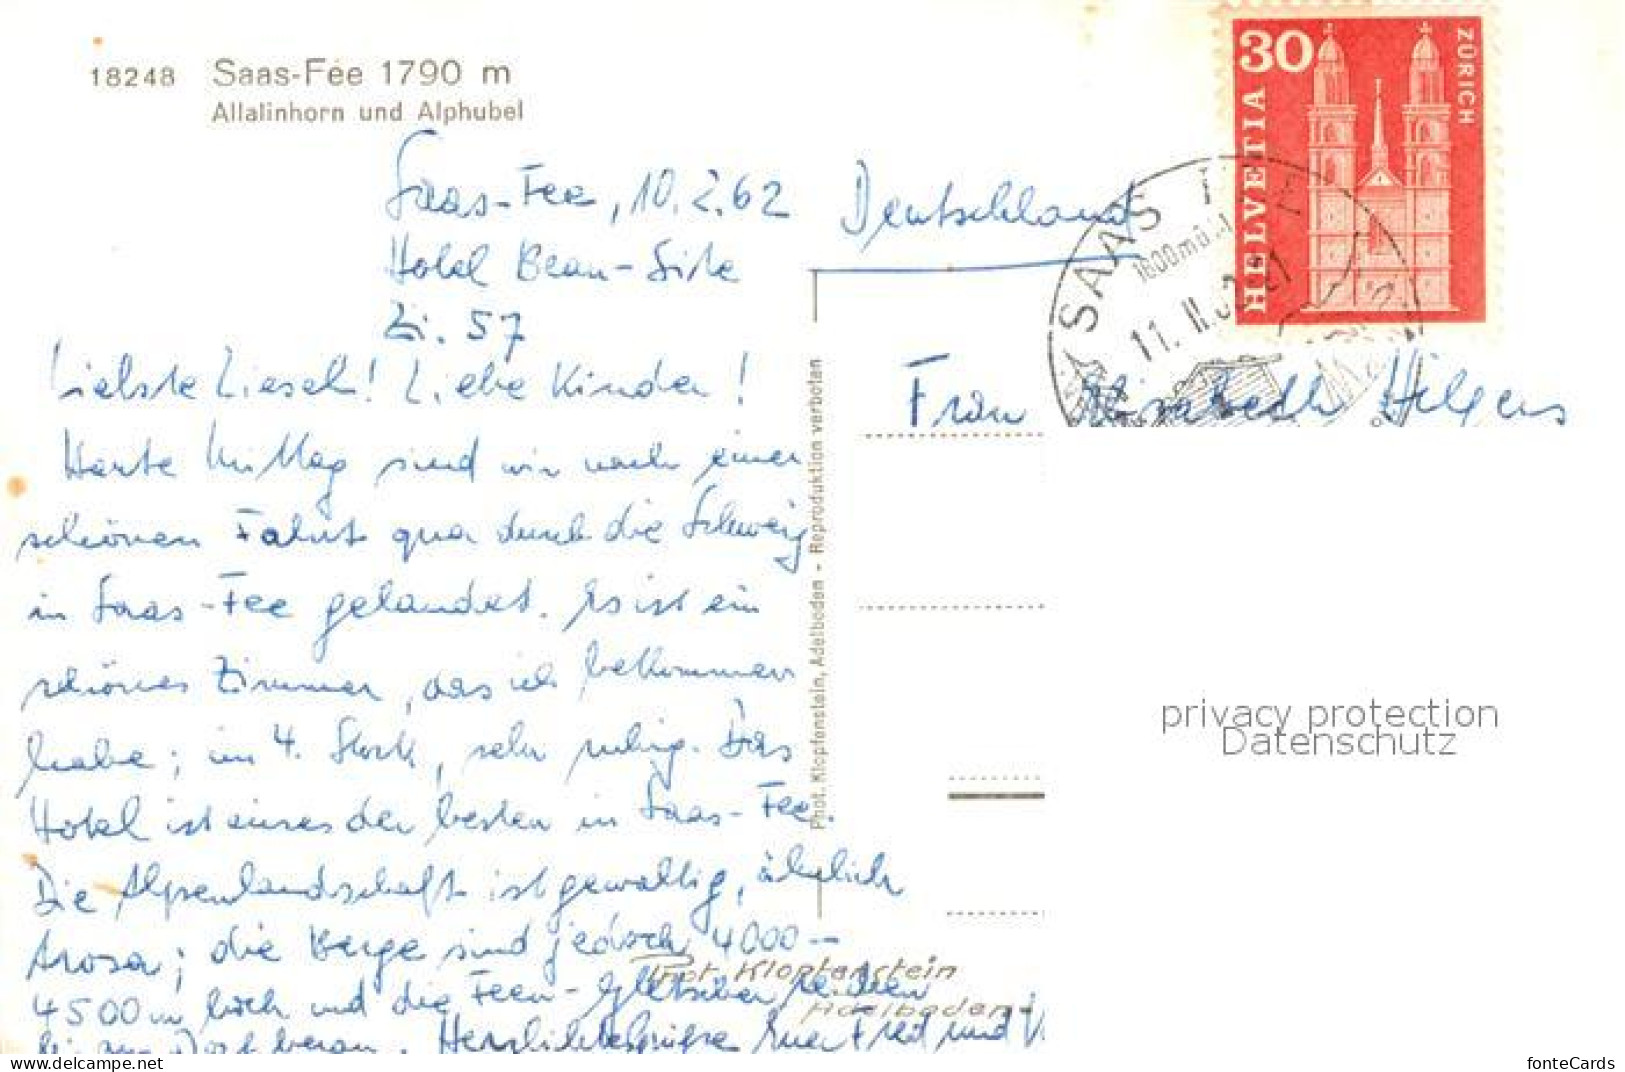 18248 Saas-Fée 1790 m
Allalinhorn und Alphubel
30
HELVETIA
ZÜRICH
SAAS FEE
1800 m ü. M.
11. II. 62-21
Saas-Fee, 10.2.62
Hotel Beau-Site
Zi. 57
Deutschland
Frau Elisabeth Hilgers
Liebste Liesel! Liebe Kinder!
Heute Mittag sind wir nach einer
schönen Fahrt quer durch die Schweiz
in Saas-Fee gelandet. Es ist ein
schönes Zimmer, das ich bekommen
habe; im 4. Stock, sehr ruhig. Das
Hotel ist eines der besten in Saas-Fee.
Die Alpenlandschaft ist gewaltig, ähnlich
Arosa; die Berge sind jedoch 4000–
4500 m hoch und die Feen-Gletscher reichen
bis zum Dorf heran. Herzlichste Grüße Euer Fred und V
Phot. Klopfenstein, Adelboden - Reproduktion verboten
Phot. Klopfenstein
Adelboden
privacy protection
Datenschutz
www.delcampe.net
fonteCards